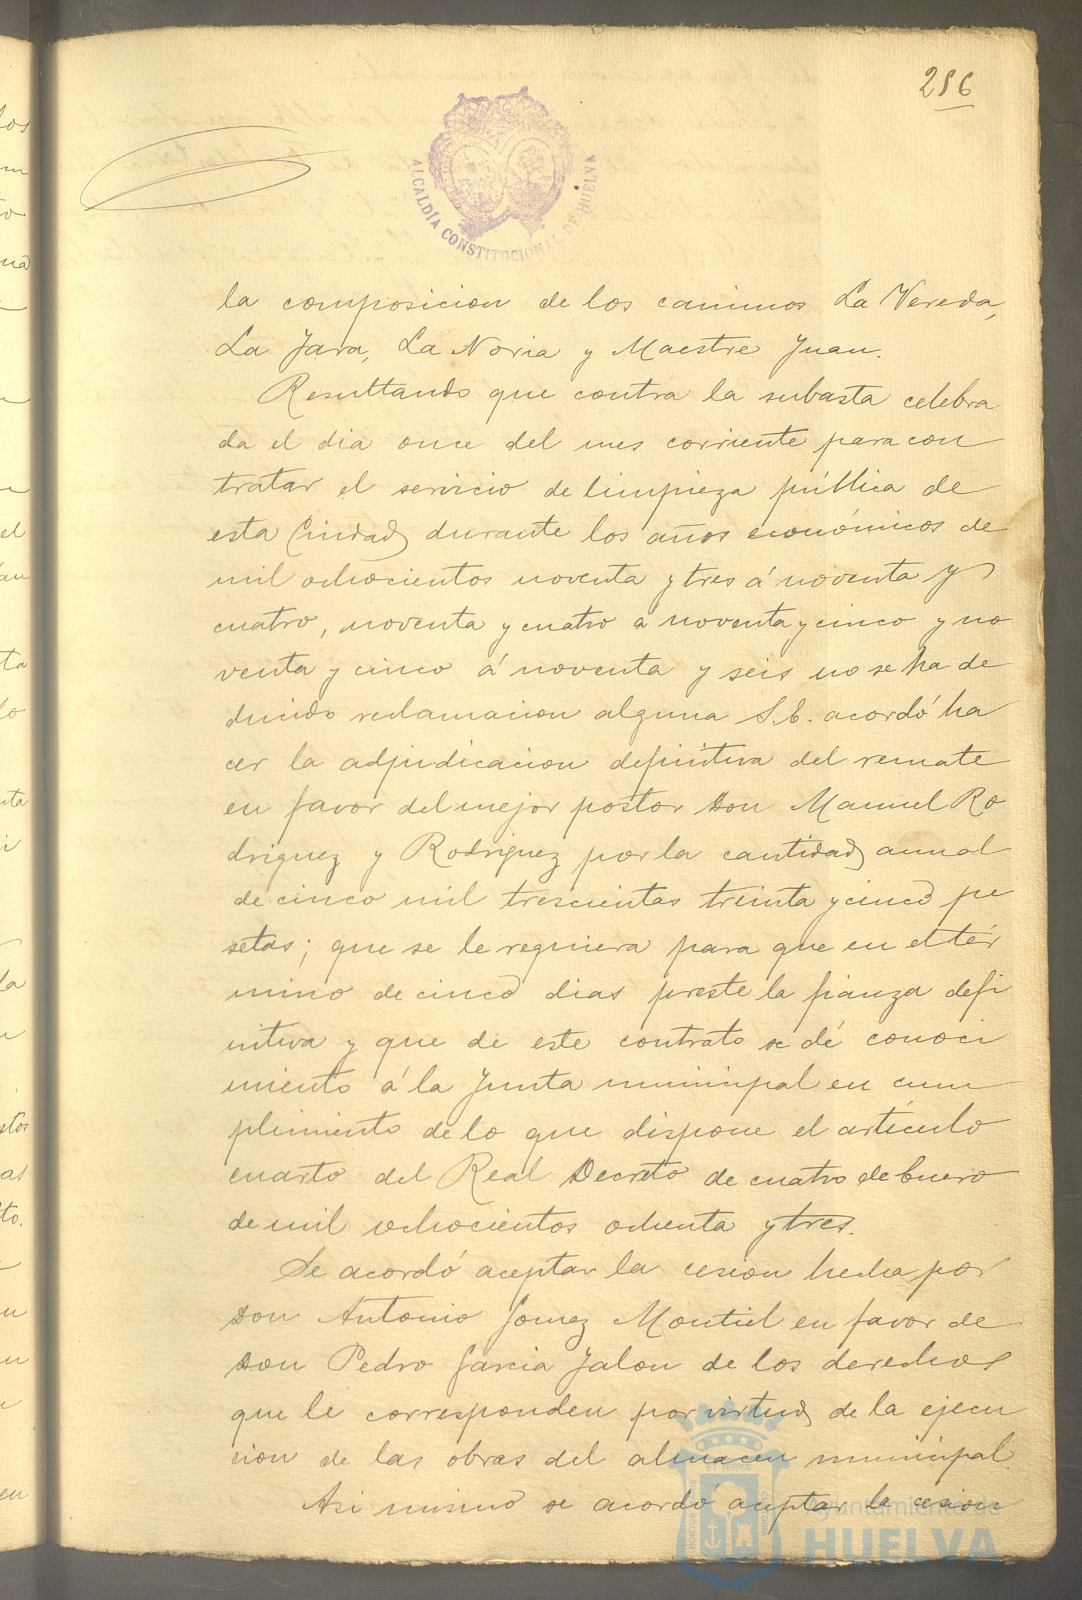 286
ALCALDÍA CONSTITUCIONAL DE HUELVA
la composicion de los caminos La Vereda,
La Jara, La Noria y Maestre Juan.
Resultando que contra la subasta celebra
da el dia once del mes corriente para con
tratar el servicio de limpieza pública de
esta Ciudad durante los años económicos de
mil ochocientos noventa y tres á noventa y
cuatro, noventa y cuatro a noventa y cinco y no
venta y cinco á noventa y seis no se ha de
ducido reclamacion alguna S.E. acordó ha
cer la adjudicacion definitiva del remate
en favor del mejor postor Don Manuel Ro
driguez y Rodriguez por la cantidad anual
de cinco mil trescientas treinta y cinco pe
setas; que se le requiera para que en el tér
mino de cinco dias preste la fianza defi
nitiva y que de este contrato se dé conoci
miento á la Junta municipal en cum
plimiento de lo que dispone el artículo
cuarto del Real Decreto de cuatro de Enero
de mil ochocientos ochenta y tres.
Se acordó aceptar la cesion hecha por
Don Antonio Gomez Montiel en favor de
Don Pedro Garcia Jalon de los derechos
que le corresponden por virtud de la ejecu
cion de las obras del almacen municipal
Asi mismo se acordó aceptar la cesion
Ayuntamiento de
HUELVA